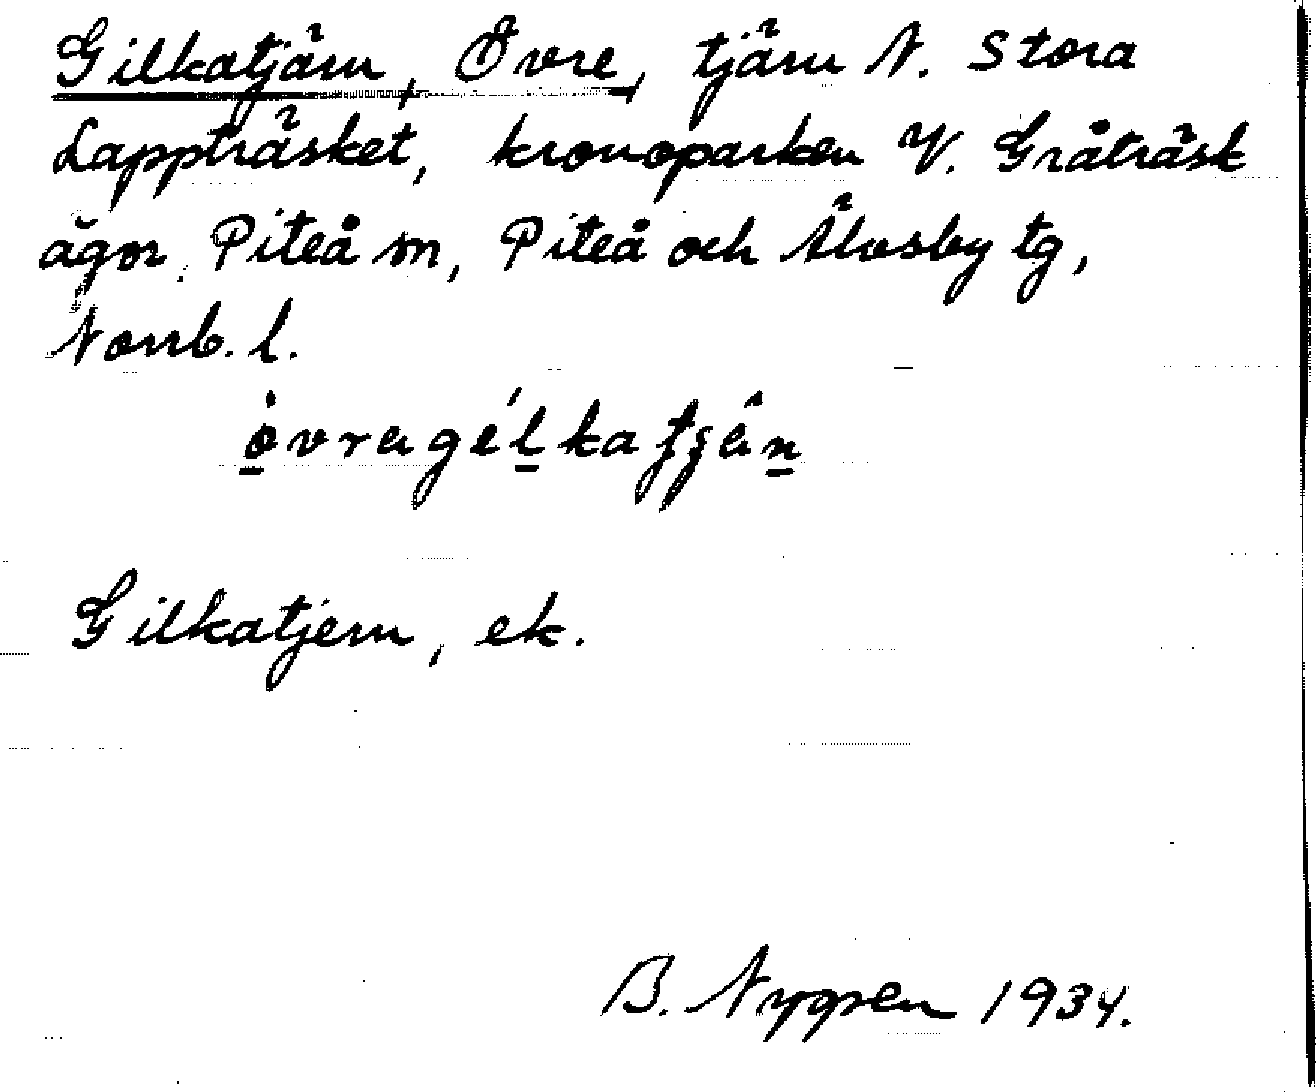 Gilkatjärn, Övre, tjärn N. Stora
Lappträsket, kronoparken V. Gråträsk
ägor Piteå sn, Piteå och Älvsby tg,
Norrb. l.
Gilkatjern, ek.
B. Nygren 1934.